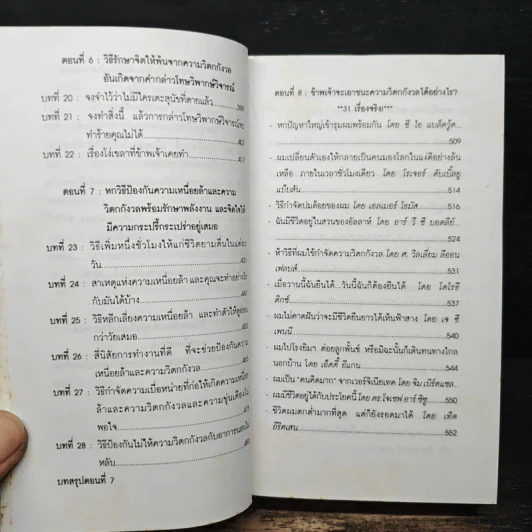 ตอนที่ 6 : วิธีรักษาจิตให้พ้นจากความวิตกกังวล
อันเกิดจากคำกล่าวโทษวิพากษ์วิจารณ์
บทที่ 20 : จงจำไว้ว่าไม่มีใครเตะสุนัขที่ตายแล้ว
บทที่ 21 : จงทำสิ่งนี้ แล้วการกล่าวโทษวิพากษ์วิจารณ์จะ
ทำร้ายคุณไม่ได้
บทที่ 22 : เรื่องโง่เขลาที่ข้าพเจ้าเคยทำ
ตอนที่ 7 : หกวิธีป้องกันความเหนื่อยล้าและความ
วิตกกังวลพร้อมรักษาพลังงาน และจิตใจให้
มีความกระปรี้กระเปร่าอยู่เสมอ
บทที่ 23 : วิธีเพิ่มหนึ่งชั่วโมงให้แก่ชีวิตยามตื่นในแต่ละ
วัน
บทที่ 24 : สาเหตุแห่งความเหนื่อยล้า และคุณจะทำอย่างไร
กับมันได้บ้าง
บทที่ 25 : วิธีหลีกเลี่ยงความเหนื่อยล้า และทำตัวให้ดูอ่อน
กว่าวัยเสมอ
บทที่ 26 : สี่นิสัยการทำงานที่ดี ที่จะช่วยป้องกันความ
เหนื่อยล้าและความวิตกกังวล
บทที่ 27 : วิธีกำจัดความเบื่อหน่ายที่ก่อให้เกิดความเหนื่อย
ล้าและความวิตกกังวลและความขุ่นเคืองไม่
พอใจ
บทที่ 28 : วิธีป้องกันไม่ให้ความวิตกกังวลกับอาการนอนไม่
หลับ
บทสรุปตอนที่ 7
ตอนที่ 8 : ข้าพเจ้าจะเอาชนะความวิตกกังวลได้อย่างไร?
"31 เรื่องจริง"
- หกปัญหาใหญ่เข้ารุมผมพร้อมกัน โดย ซี ไอ แบล็ควู้ด
509
- ผมเปลี่ยนตัวเองให้กลายเป็นคนมองโลกในแง่ดีอย่างล้น
เหลือ ภายในเวลาชั่วโมงเดียว โดย โรเจอร์ ดับเบิ้ลยู
แบ๊บสัน 514
- วิธีกำจัดปมด้อยของผม โดย เอลเมอร์ โธมัส 516
- ฉันมีชีวิตอยู่ในสวนของอัลลาห์ โดย อาร์ วี ซี บอดลีย์
524
- ห้าวิธีที่ผมใช้กำจัดความวิตกกังวล โดย ศ. วิลเลี่ยม ลีออน
เฟลปส์ 531
- เมื่อวานนี้ฉันยืนได้...วันนี้ฉันก็ต้องยืนได้ โดย โดโรธี
ดิกซ์ 537
- ผมไม่คาดฝันว่าจะมีชีวิตยืนยาวได้เห็นฟ้าสาง โดย เจ ซี
เพนนี 540
- ผมไปโรงยิมฯ ต่อยลูกพั้นช์ หรือมิฉะนั้นก็เดินทนทางไกล
นอกบ้าน โดย เอ็ดดี้ อีแกน 544
- ผมเป็น "คนคิดมาก" จากเวอร์จิเนียเทค โดย จิม เบิร์ดแซล
- ผมมีชีวิตอยู่ได้กับประโยคนี้ โดย ดร.โจเซฟ อาร์ ซิซู 550
- ชีวิตผมตกต่ำมากที่สุด แต่ก็ยังรอดมาได้ โดย เท็ด
อีริคเสน 552